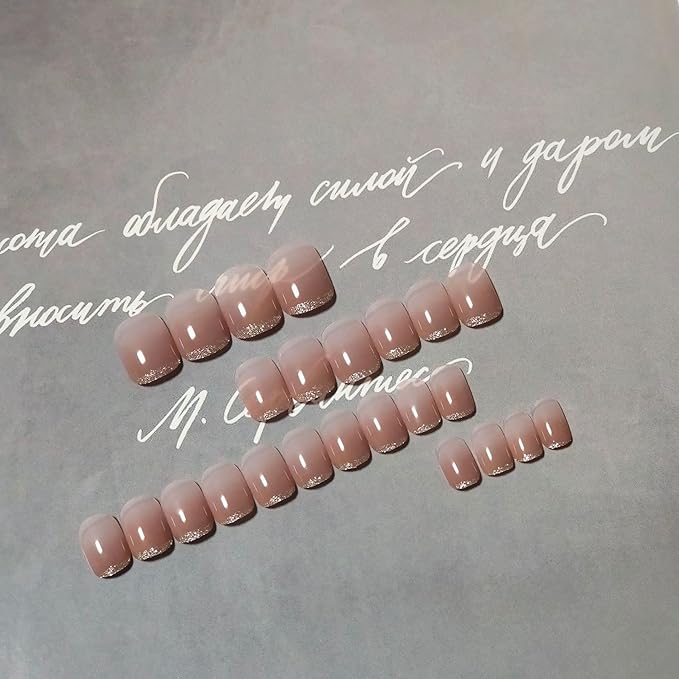 сота обладает силой и даром
вносить мир в сердца
М. Сервантес